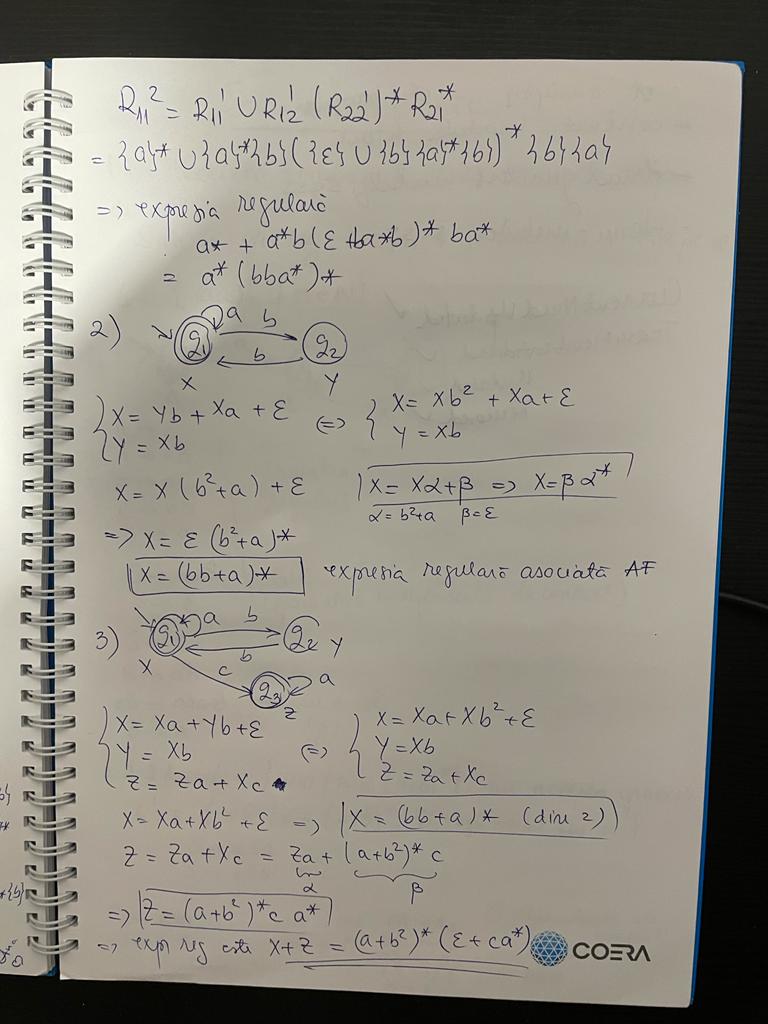 R₁₁² = R₁₁¹ ∪ R₁₂¹ (R₂₂¹)* R₂₁*
= {a}* ∪ {a}*{b}({ε} ∪ {b}{a}*{b})* {b}{a}
=> expresia regulară
a* + a*b(ε+ba*b)* ba*
= a*(bba*)*
2) q₁ a b b q₂
X Y
{ X = Yb + Xa + ε <=> { X = Xb² + Xa + ε
Y = Xb Y = Xb
X = X(b²+a) + ε X = Xα+β => X = βα*
α = b²+a β = ε
=> X = ε(b²+a)*
X = (bb+a)* expresia regulară asociată AF
3) q₁ a b b q₂ Y
X c q₃ a
Z
{ X = Xa + Yb + ε <=> { X = Xa + Xb² + ε
Y = Xb Y = Xb
Z = Za + Xc Z = Za + Xc
X = Xa + Xb² + ε => X = (bb+a)* (din 2)
Z = Za + Xc = Za + (a+b²)* c
α β
=> Z = (a+b²)*c a*
=> expr reg este X+Z = (a+b²)*(ε+ca*)
COERA